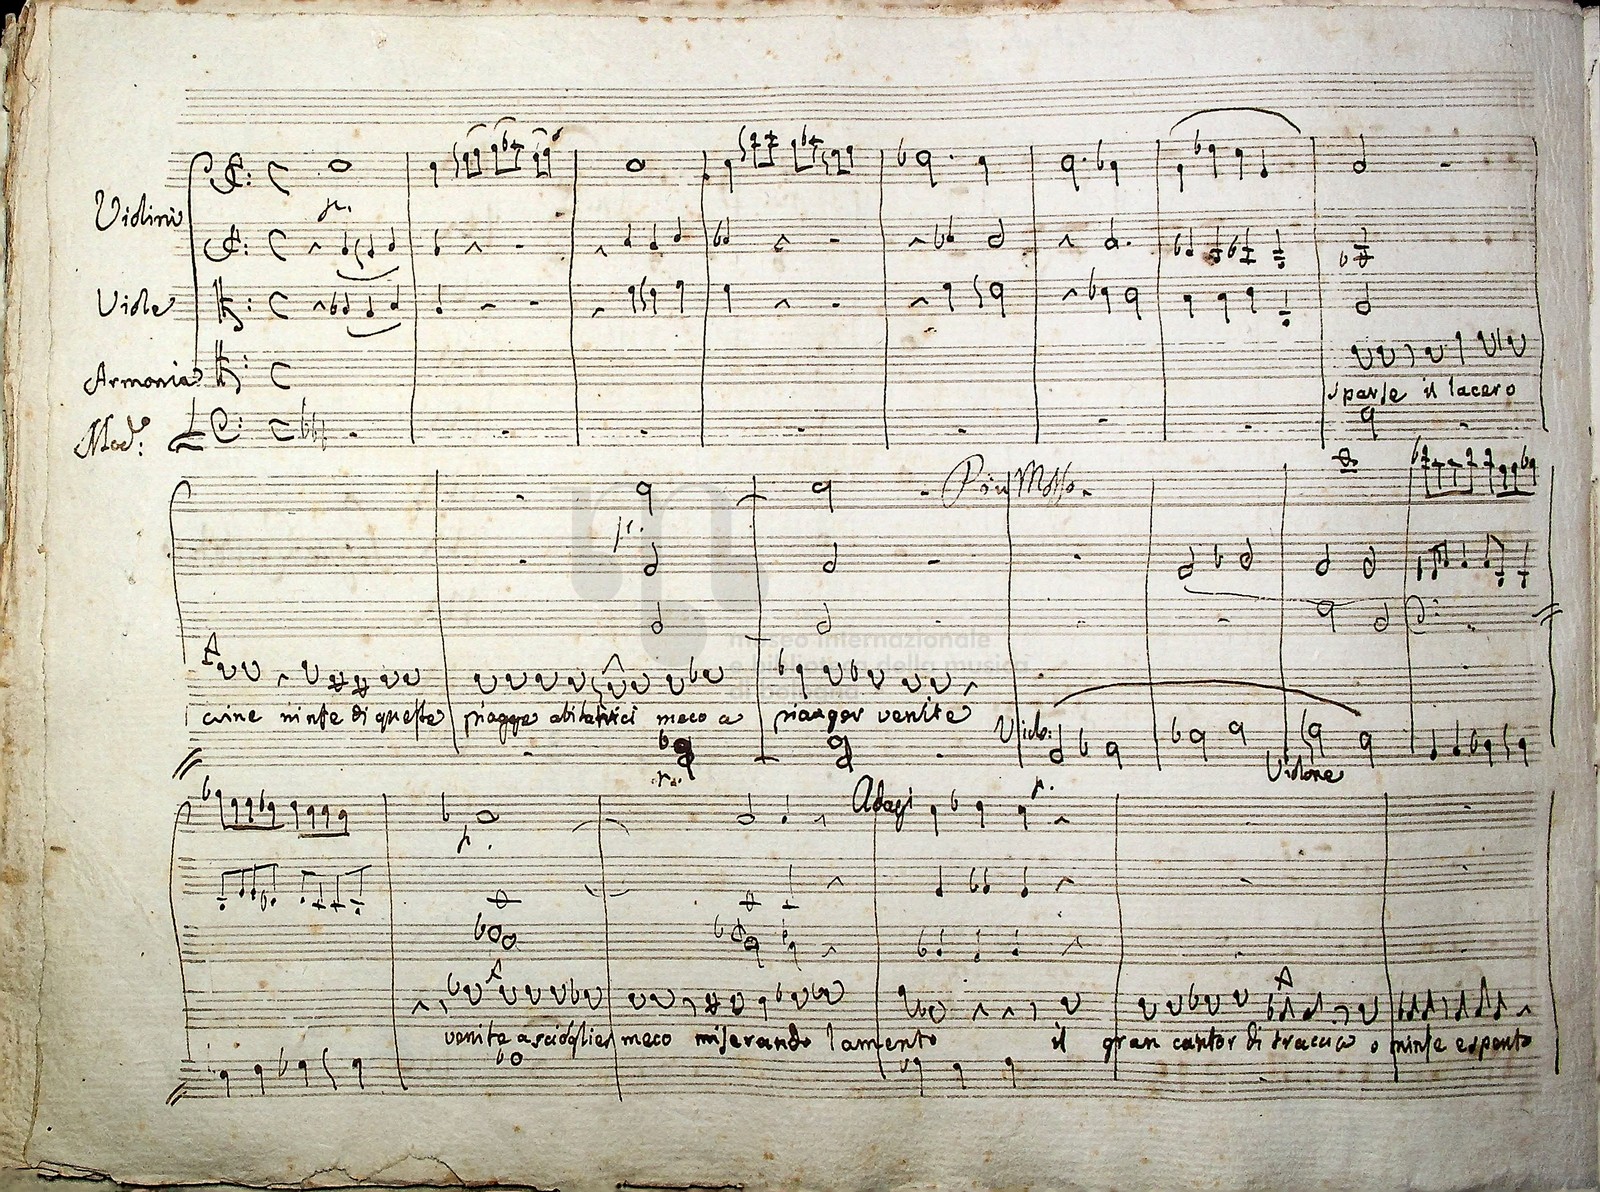 Violini
p.
Viole
Armonia
Mod.º
sparse il lacero
Piu Mosso
p.
museo internazionale
e biblioteca della musica
di bologna
crine ninfe di queste piagge abitatrici meco a pianger venite
Violone
Adag
p.
venite a scioglier meco miserando lamento il gran cantor di traccia o ninfe e spento